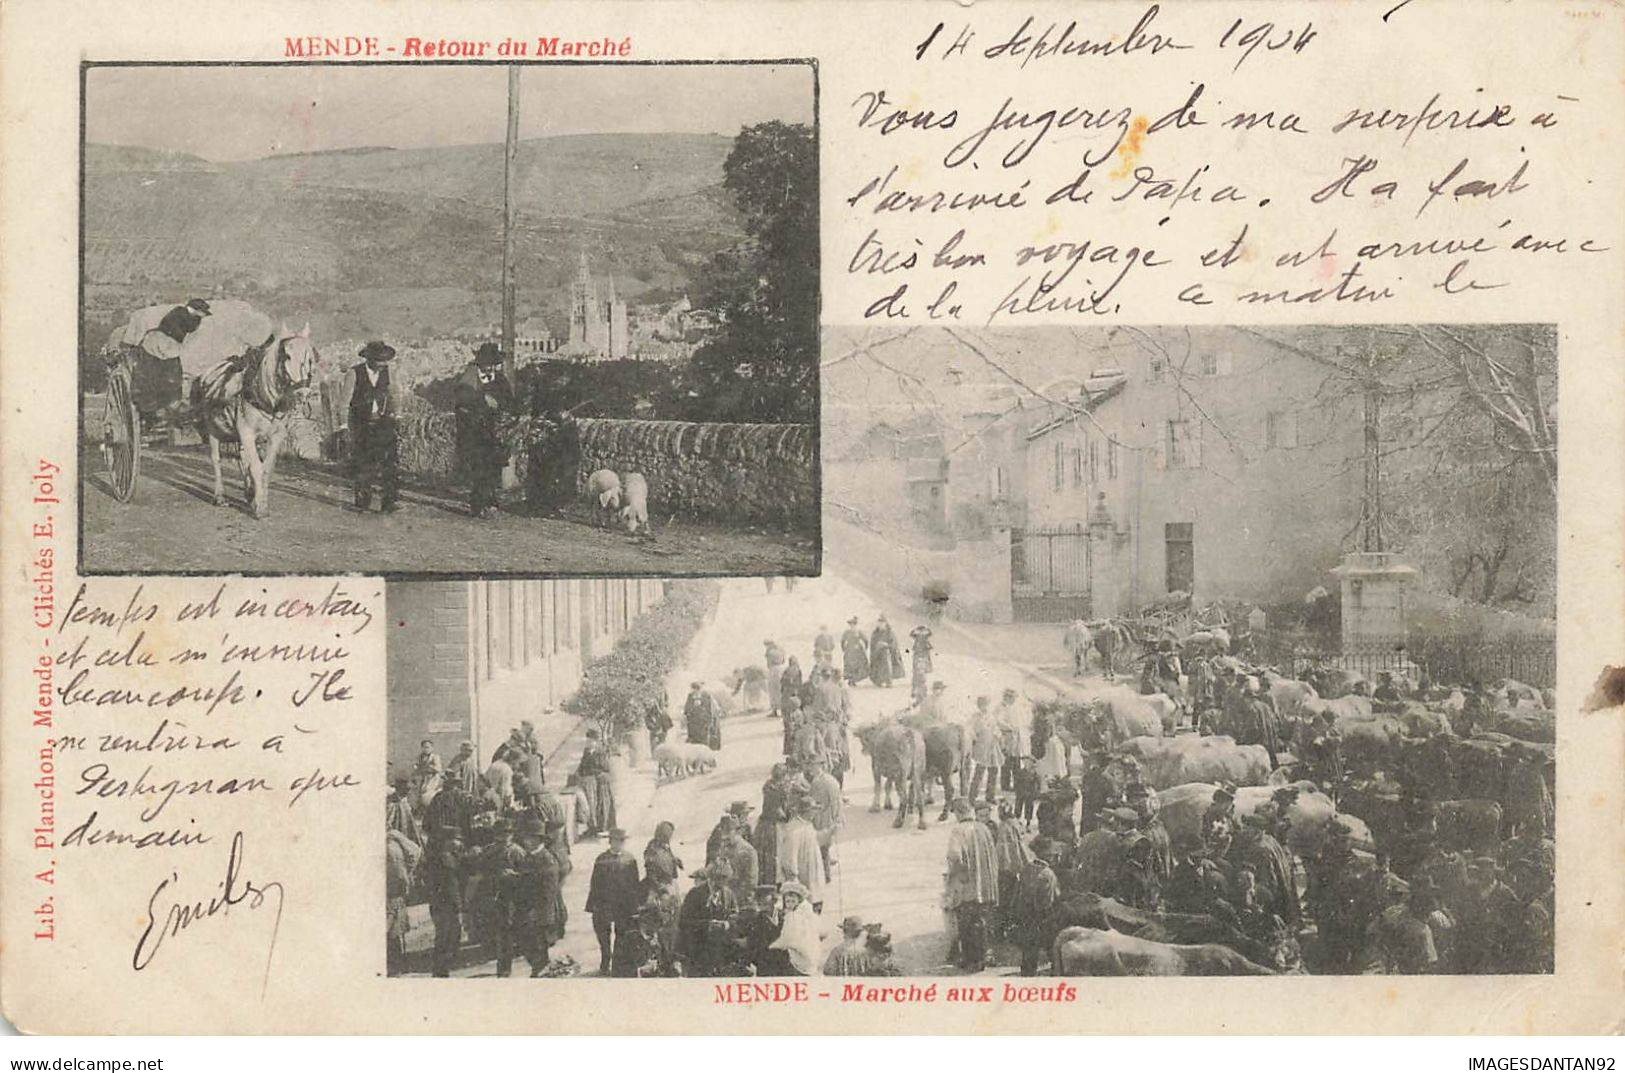 MENDE - Retour du Marché
14 Septembre 1904
Vous jugerez de ma surprise à
l'arrivée de Papa. Il a fait
très bon voyage et est arrivé avec
de la pluie. Ce matin le
temps est incertain
et cela m'ennuie
beaucoup. Ile
ne rentrera à
Perpignan que
demain
Emile
Lib. A. Planchon, Mende - Clichés E. Joly
MENDE - Marché aux bœufs
www.delcampe.net
IMAGESDANTAN92